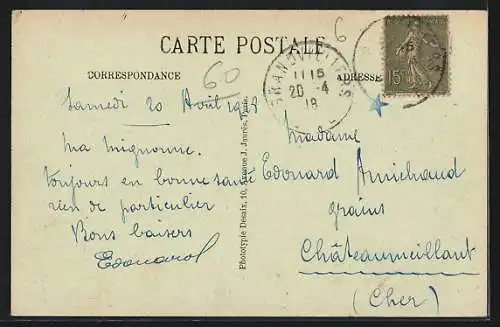 6
CARTE POSTALE
CORRESPONDANCE
60
ADRESSE
11 15
20 - 4
18
15
Samedi 20 Avril 1918
Ma mignonne.
toujours en bonne santé
rien de particulier
Bons baisers
Edouard
Phototypie Desaix, 10, Avenue J. Jaurès, Paris.
Madame
Edouard Amichaud
grains
Châteaumeillant
(Cher)